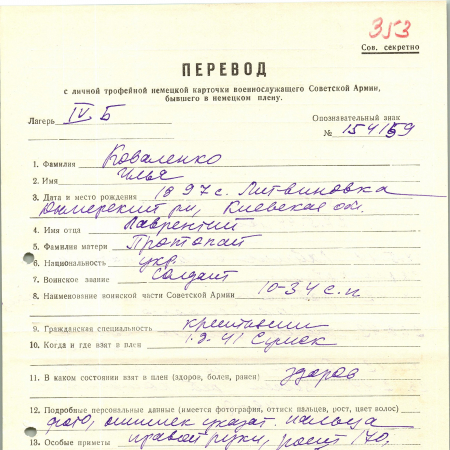 353
Сов. секретно
ПЕРЕВОД
с личной трофейной немецкой карточки военнослужащего Советской Армии,
бывшего в немецком плену.
Лагерь IV Б
Опознавательный знак
№ 154169
1. Фамилия Коваленко
2. Имя Илья
3. Дата и место рождения с. Литвиновка
Дымерский рн, Киевская обл.
4. Имя отца Лаврентий
5. Фамилия матери
6. Национальность укр.
7. Воинское звание Солдат
8. Наименование воинской части Советской Армии 10-34 с.п
9. Гражданская специальность
10. Когда и где взят в плен 1.9-41
11. В каком состоянии взят в плен (здоров, болен, ранен) здоров
12. Подробные персональные данные (имеется фотография, оттиск пальцев, рост, цвет волос)
фото, указат. пальца
13. Особые приметы правой руки, рост 170,